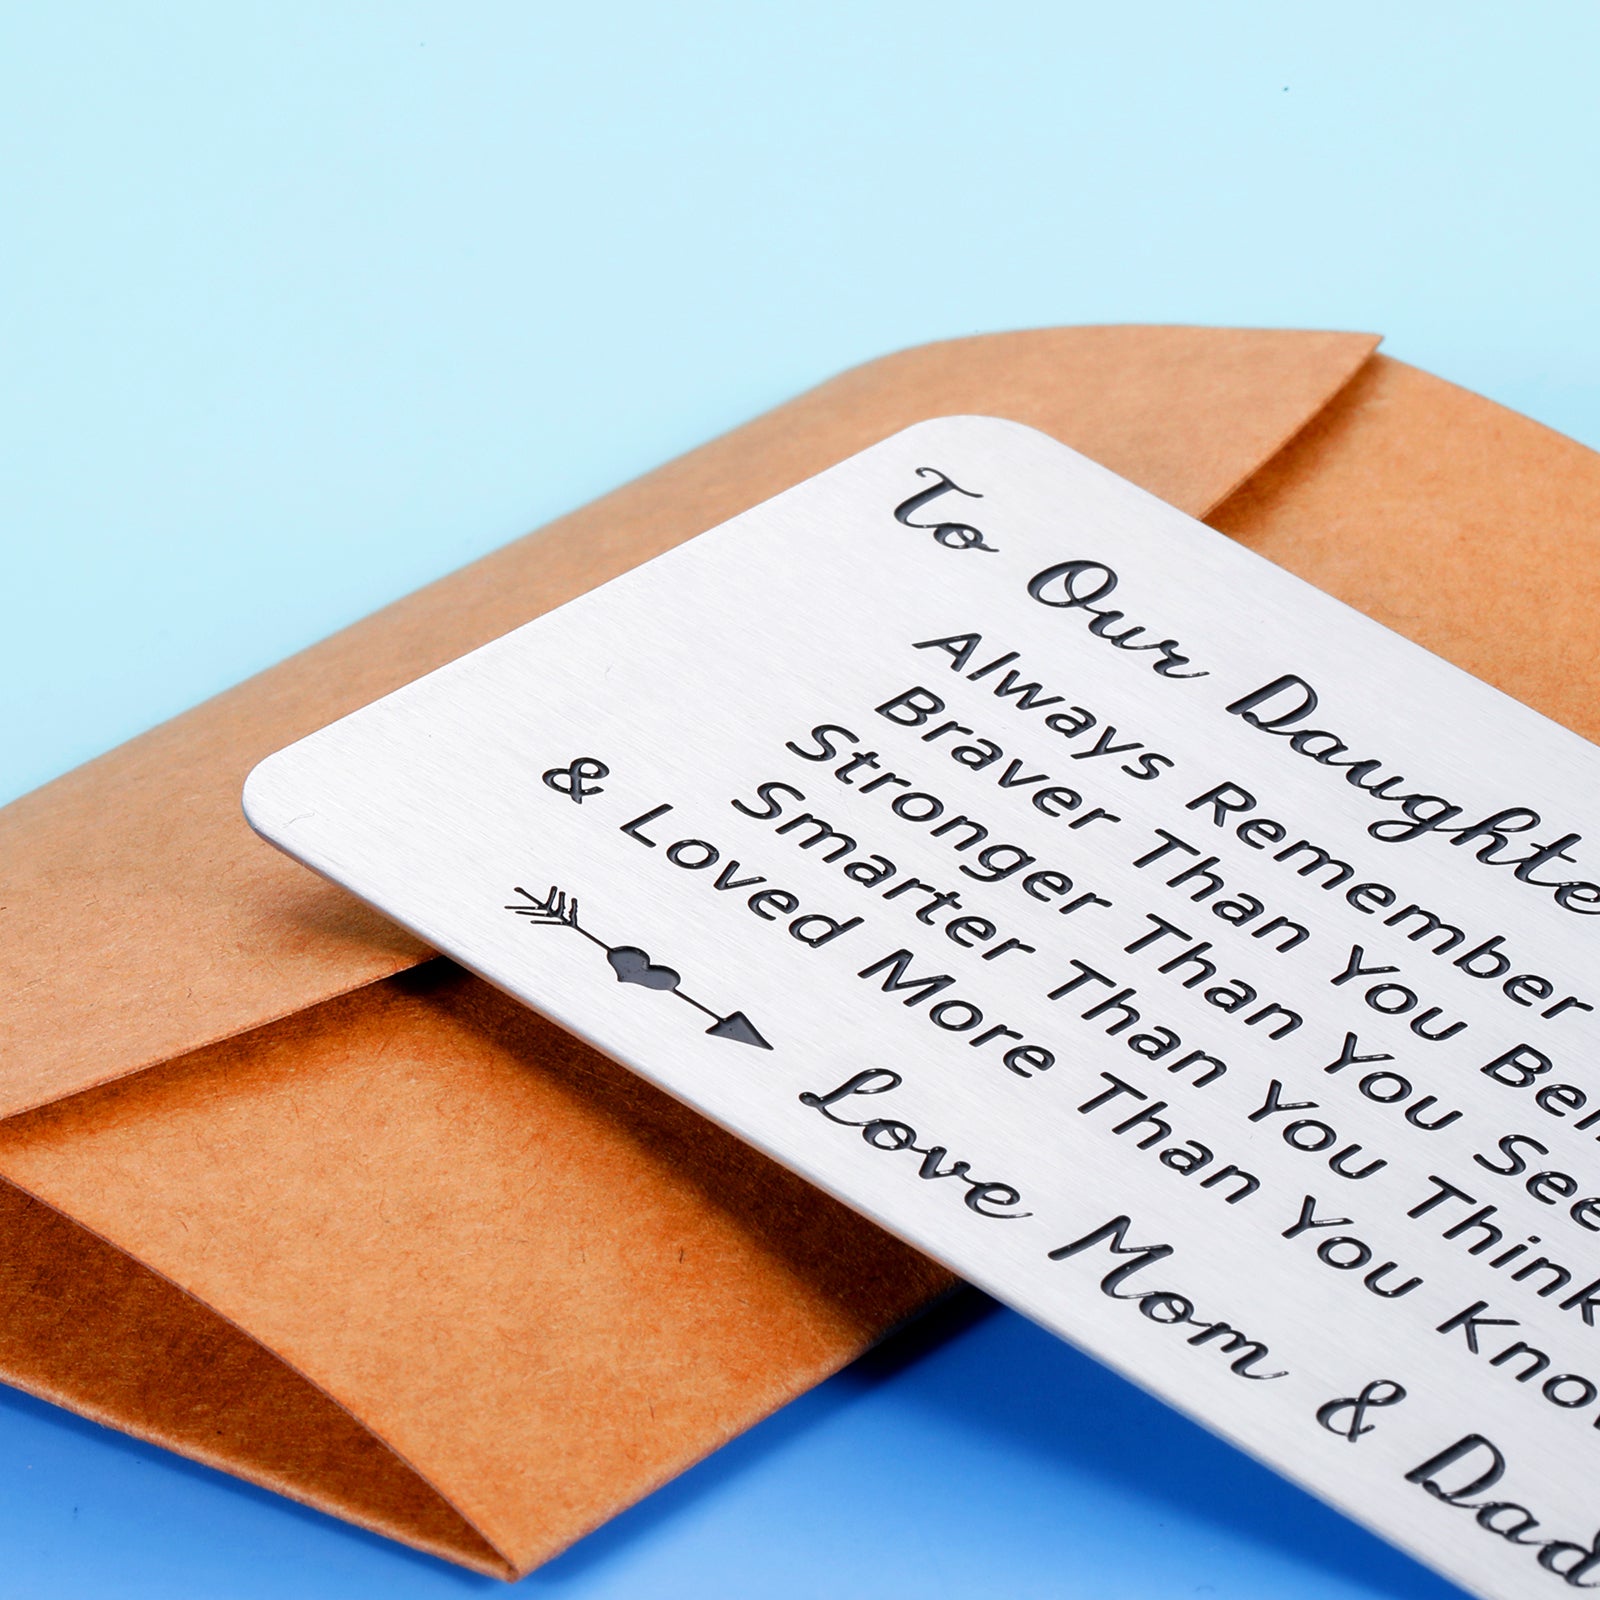 To Our Daughte
Always Remember
Braver Than You Bel
Stronger Than You See
Smarter Than You Think
& Loved More Than You Know
Love Mom & Dad